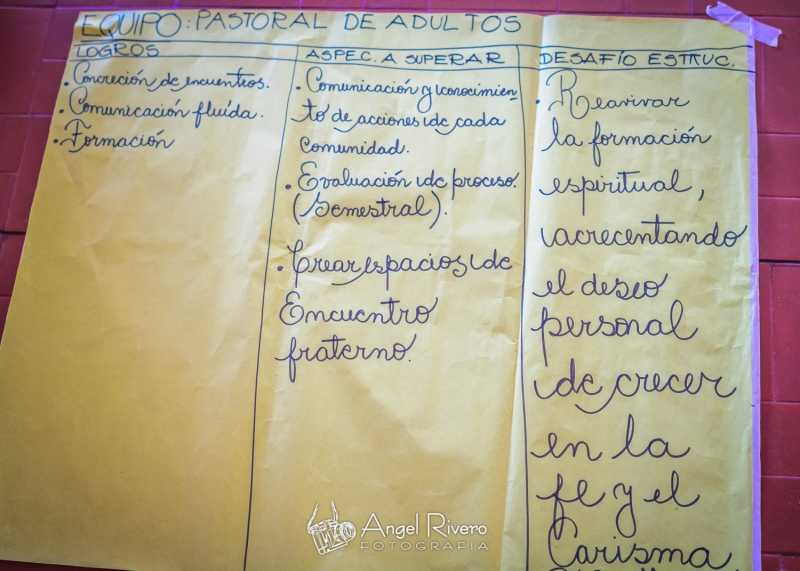 EQUIPO: PASTORAL DE ADULTOS
LOGROS
. Concreción de encuentros.
. Comunicación fluída.
. Formación
ASPEC. A SUPERAR
. Comunicación y conocimien-
to de acciones de cada
comunidad.
. Evaluación de proceso.
(Semestral).
. Crear espacios de
Encuentro
fraterno.
DESAFÍO ESTRUC.
. Reavivar
la formación
espiritual,
acrecentando
el deseo
personal
de crecer
en la
fe y el
Carisma
Angel Rivero
FOTOGRAFIA